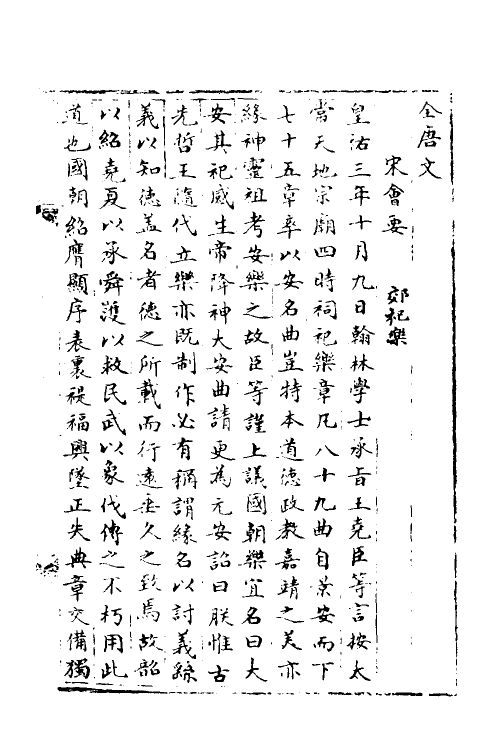 全唐文
宋會要　郊祀樂
皇祐三年十月九日翰林學士承旨王堯臣等言按太
常天地宗廟四時祠祀樂章凡八十九曲自景安而下
七十五章率以安名曲豈特本道德政教嘉靖之美亦
緣神靈祖考安樂之故臣等謹上議國朝樂宜名曰大
安其祀感生帝降神大安曲請更為元安詔曰朕惟古
先哲王隨代立樂亦既制作必有稱謂緣名以討義繇
義以知德盖名者德之所載而行遠垂久之致焉故韶
以紹堯夏以承舜濩以救民武以象伐傳之不朽用此
道也國朝紹膺顯序表裏禔福興墜正失典章交備獨